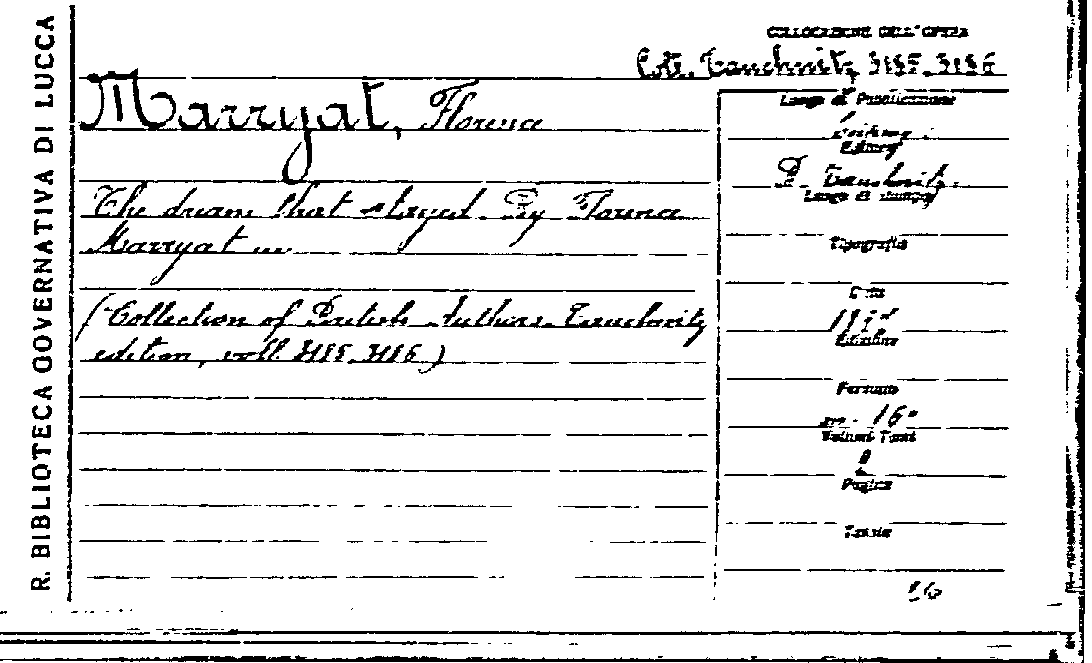 R. BIBLIOTECA GOVERNATIVA DI LUCCA
COLLOCAZIONE DELL'OPERA
Tauchnitz 3185-3186
Marryat, Florence
The dream that stayed. By Florence
Marryat ...
(Collection of British Authors. Tauchnitz
edition, voll. 3185-3186)
Luogo di Pubblicazione
Leipzig
Editore
B. Tauchnitz
Luogo di stampa
Tipografia
Data
Edizione
Formato
in-16°
Volumi Tomi
2
Pagine
Tavole